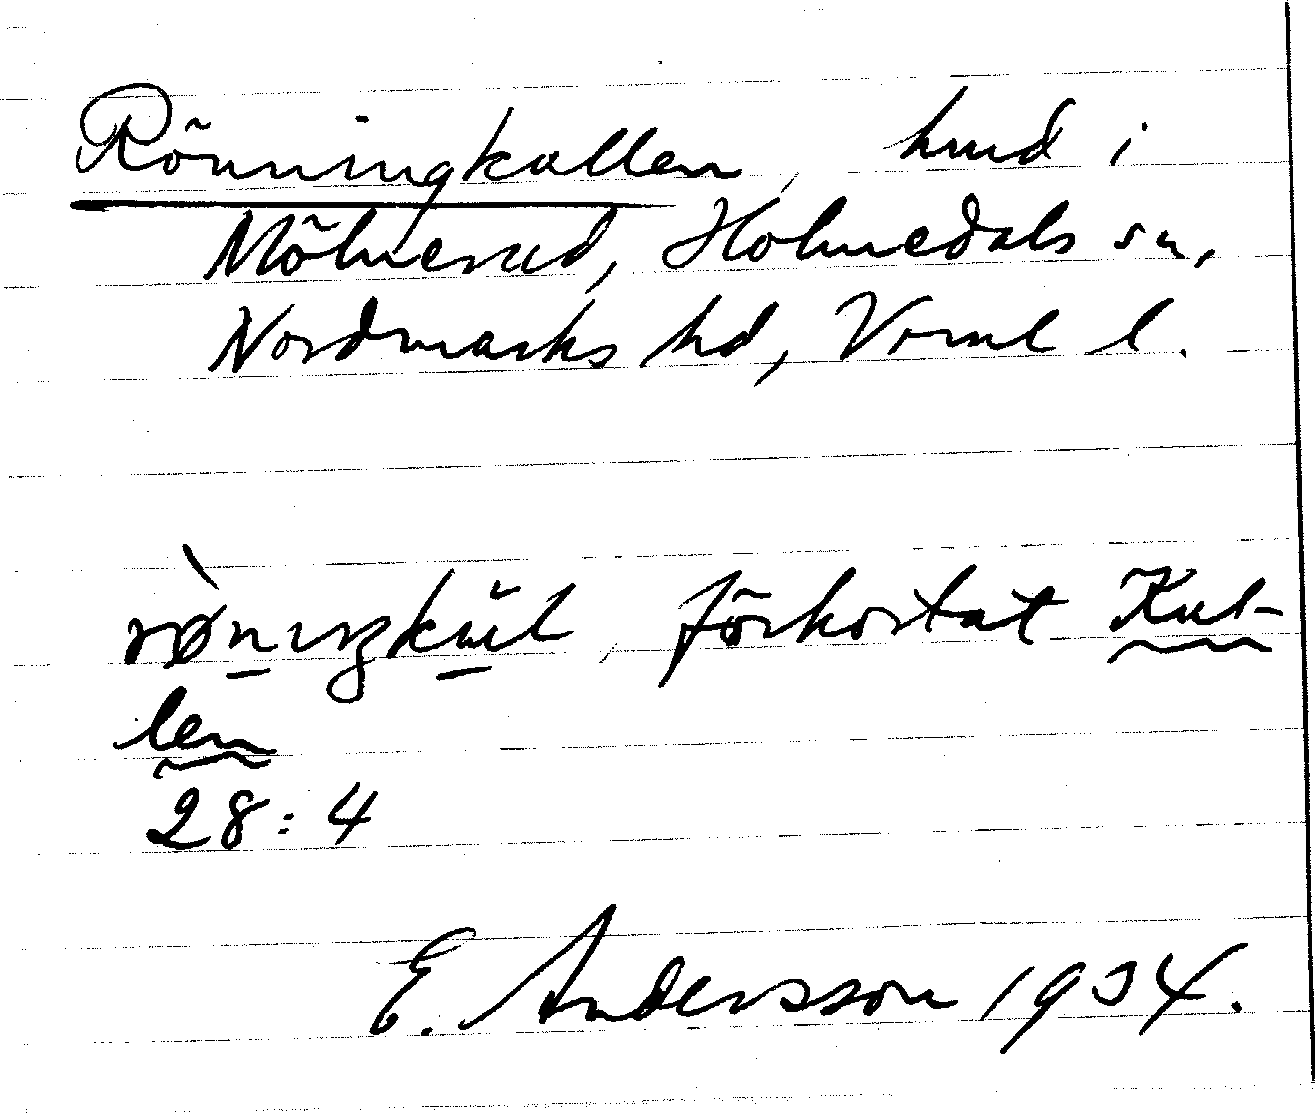 Rönningkullen, hmd i
Mölnerud, Holmedals sn,
Nordmarks hd, Vrml l.
förkortat Kul-
len
28:4
E. Andersson 1934.